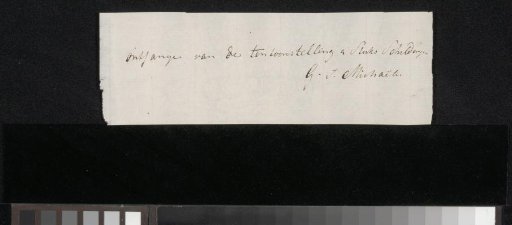 ontfange van de tentoonstelling 2 Stuks Schildery
G. J. Michaëlis